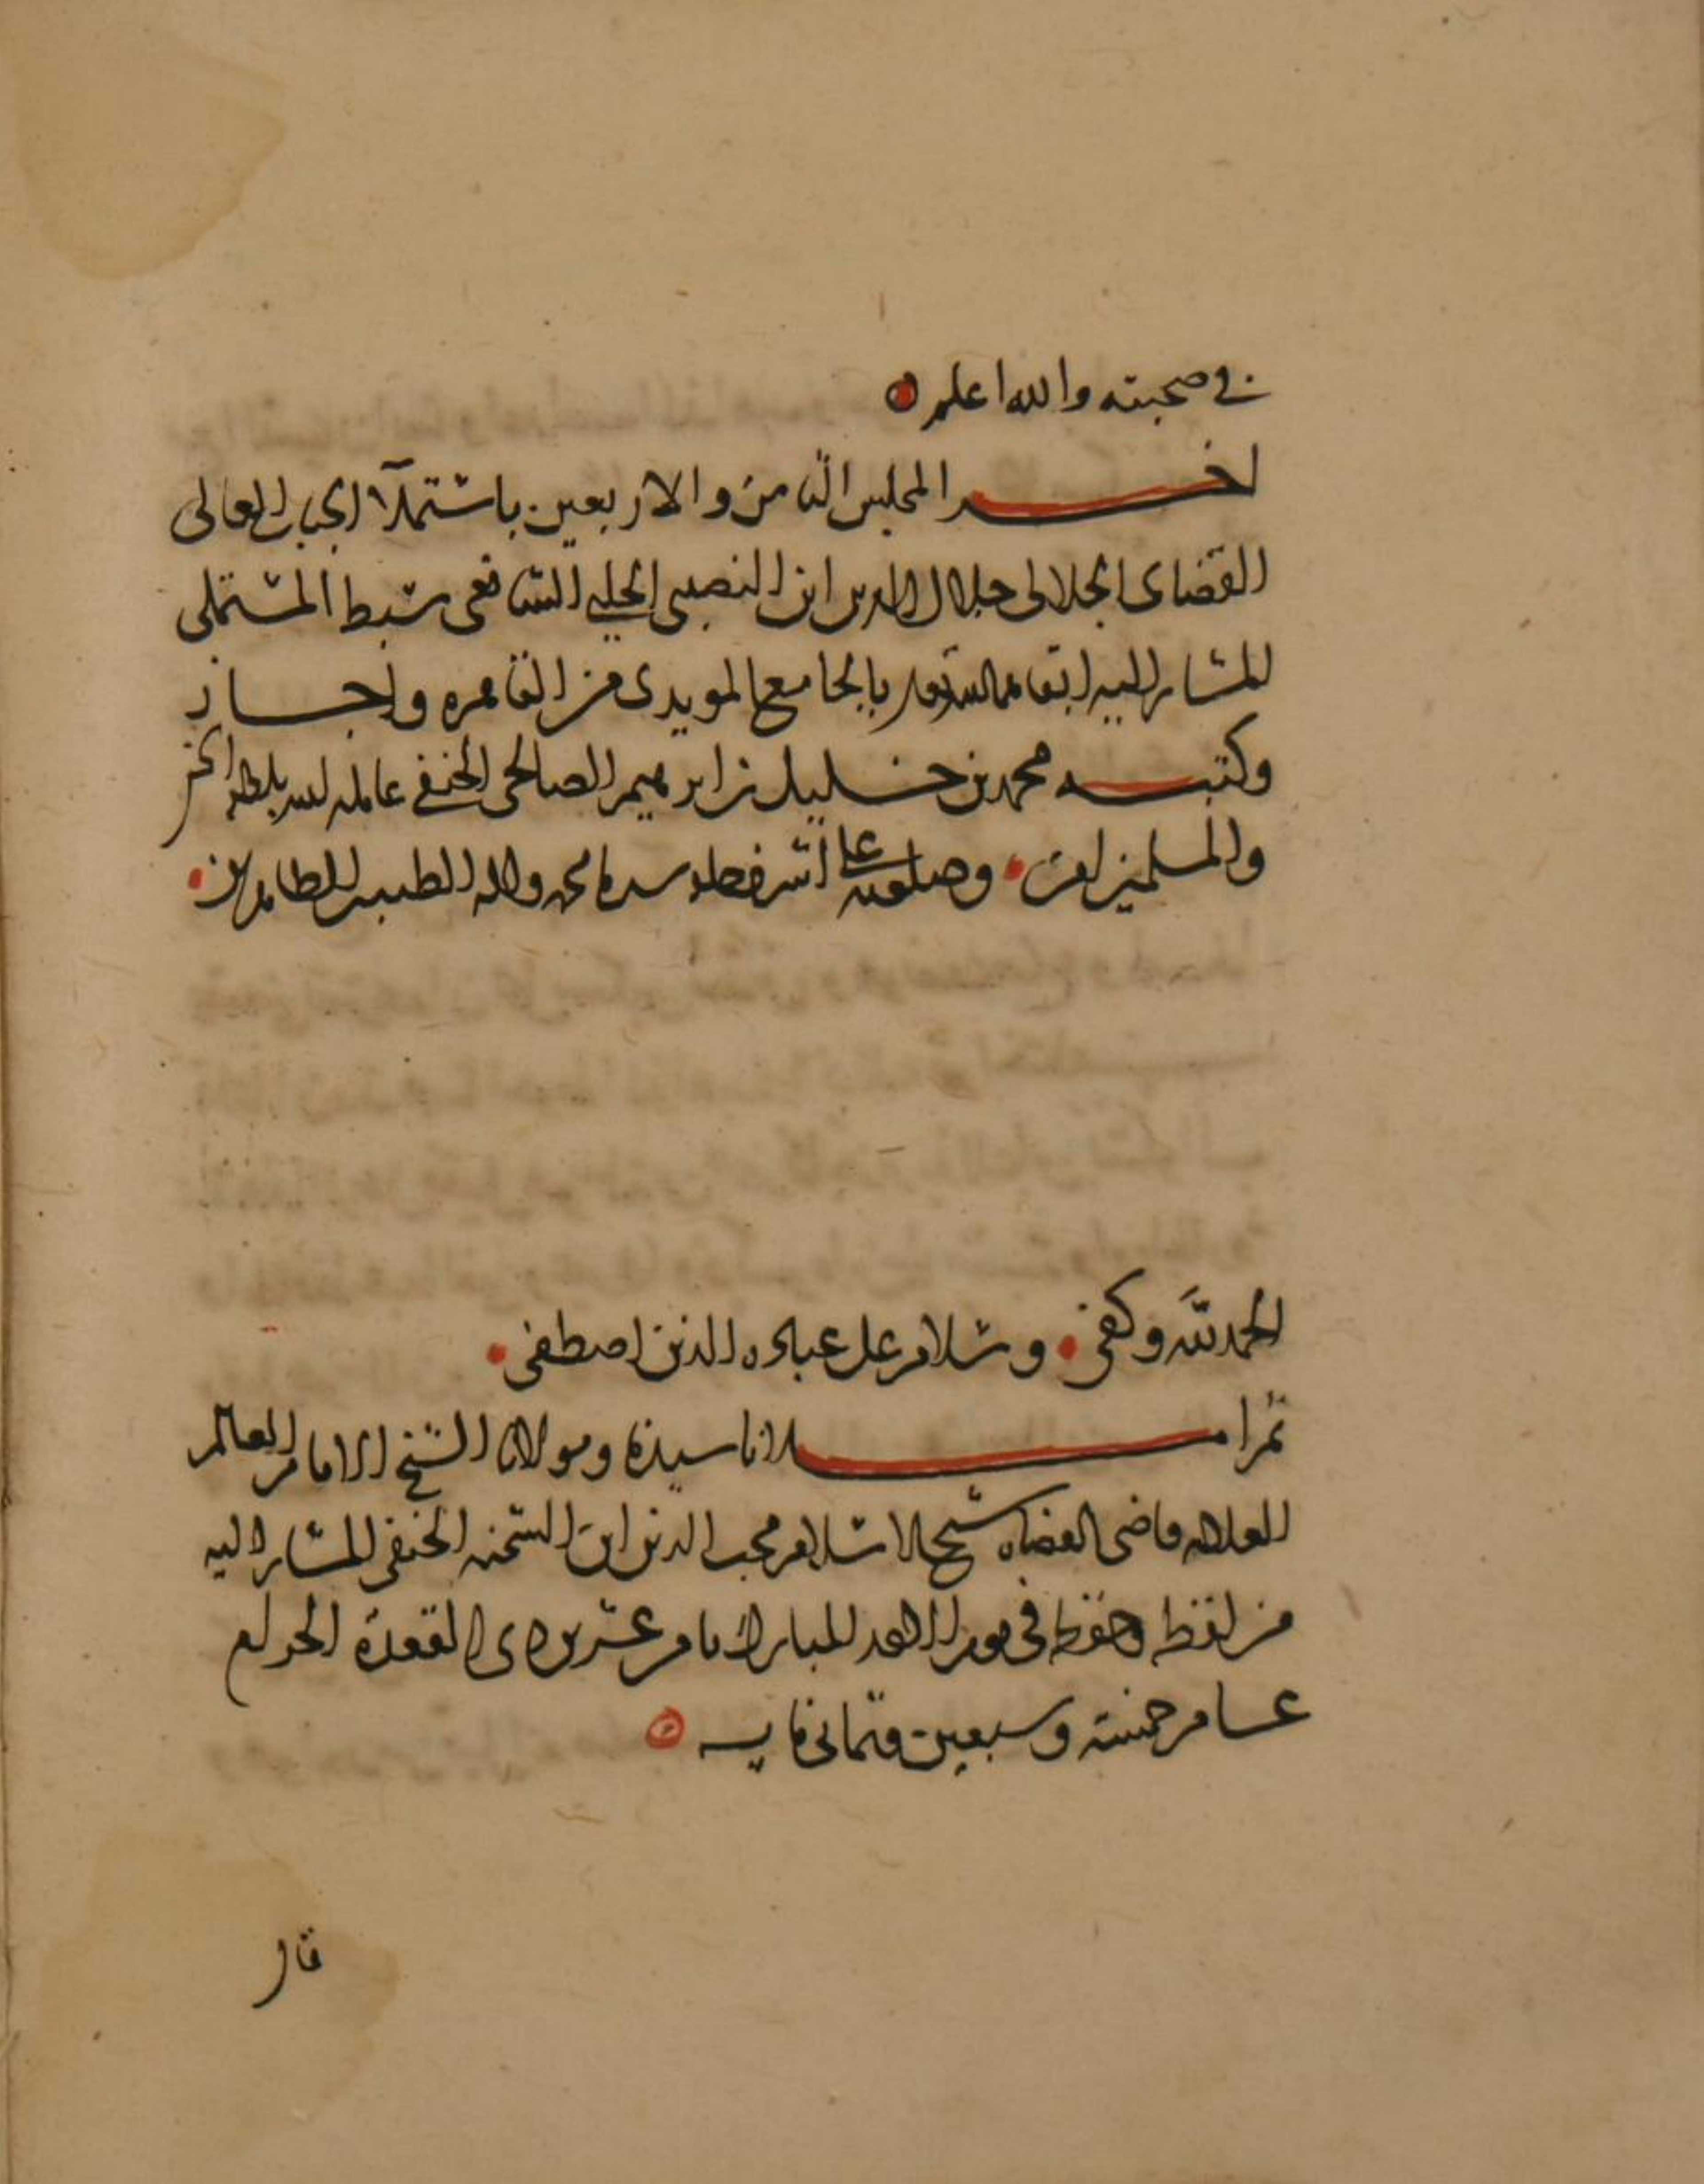 في صحبته والله اعلم
اخر المجلس الثامن والاربعين باستملآ الجناب العالى
القضاى الجلالى جلال الدين ابن النصيبى الحلبي الشافعى سبط المستملى
المشار اليه ابقاهما الله تعالى بالجامع المويدى من القاهره واجاز
وكتبه محمد بن خليل بن ابرهيم الصالحى الحنفي عامله الله بلطفه الخفي
والمسلمين امين وصلى الله على اشرف خلقه سيدنا محمد واله الطيبين الطاهرين
الحمد لله وكفى وسلام على عباده الذين اصطفى
ثم املانا سيدنا ومولانا الشيخ الامام العالم
العلامه قاضى القضاه شيخ الاسلام محب الدين ابن الشحنه الحنفى المشار اليه
من لفظه وحفظه في يوم الاحد المبارك ثامن عشرين ذى القعدة الحرام
عام خمسة وسبعين وثمانمايه
قال